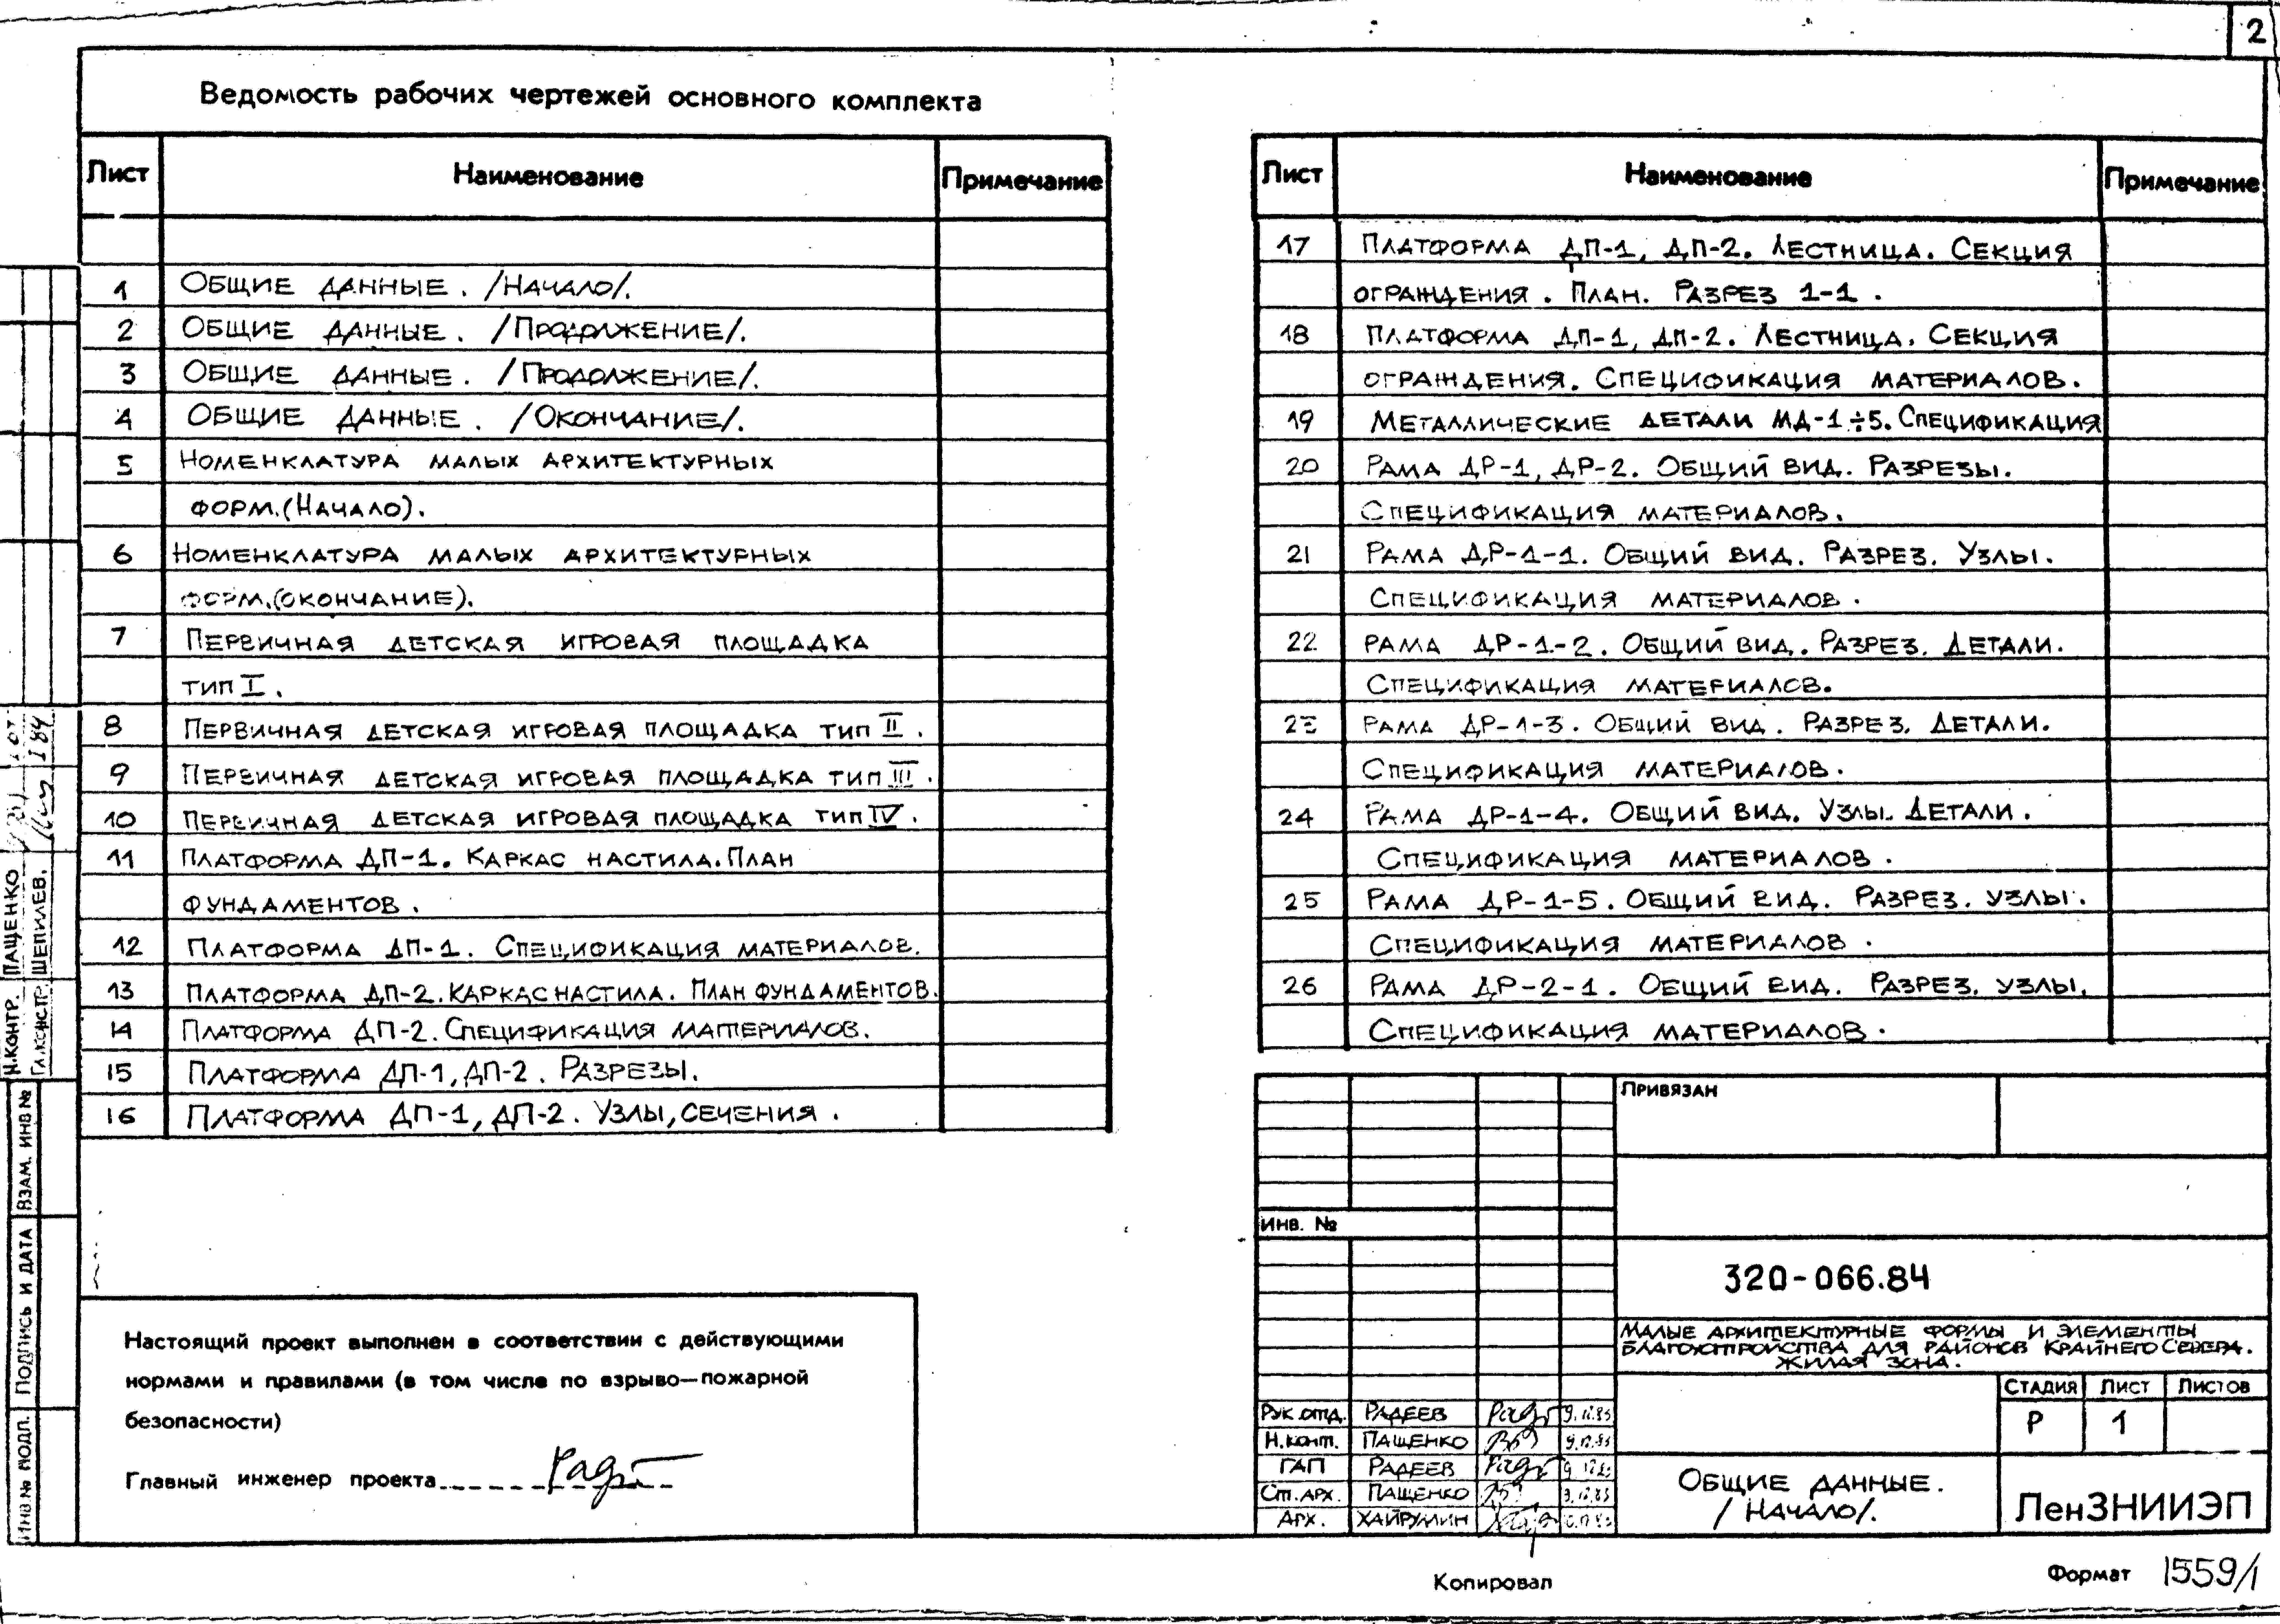 2
Ведомость рабочих чертежей основного комплекта
Лист Наименование Примечание
1 Общие данные. /Начало/.
2 Общие данные. /Продолжение/.
3 Общие данные. /Продолжение/.
4 Общие данные. /Окончание/.
5 Номенклатура малых архитектурных
форм.(Начало).
6 Номенклатура малых архитектурных
форм.(окончание).
7 Первичная детская игровая площадка
тип I.
8 Первичная детская игровая площадка тип II.
9 Первичная детская игровая площадка тип III.
10 Первичная детская игровая площадка тип IV.
11 Платформа ДП-1. Каркас настила. План
фундаментов.
12 Платформа ДП-1. Спецификация материалов.
13 Платформа ДП-2. Каркас настила. План фундаментов.
14 Платформа ДП-2. Спецификация материалов.
15 Платформа ДП-1, ДП-2. Разрезы.
16 Платформа ДП-1, ДП-2. Узлы, сечения.
Лист Наименование Примечание
17 Платформа ДП-1, ДП-2. Лестница. Секция
ограждения. План. Разрез 1-1.
18 Платформа ДП-1, ДП-2. Лестница. Секция
ограждения. Спецификация материалов.
19 Металлические детали МД-1÷5. Спецификация
20 Рама ДР-1, ДР-2. Общий вид. Разрезы.
Спецификация материалов.
21 Рама ДР-1-1. Общий вид. Разрез. Узлы.
Спецификация материалов.
22 Рама ДР-1-2. Общий вид. Разрез. Детали.
Спецификация материалов.
23 Рама ДР-1-3. Общий вид. Разрез. Детали.
Спецификация материалов.
24 Рама ДР-1-4. Общий вид. Узлы. Детали.
Спецификация материалов.
25 Рама ДР-1-5. Общий вид. Разрез. Узлы.
Спецификация материалов.
26 Рама ДР-2-1. Общий вид. Разрез. Узлы.
Спецификация материалов.
Н.контр. Пащенко
Гл.констр. Шепилев.
Инв № подл. Подпись и дата Взам. инв №
Настоящий проект выполнен в соответствии с действующими
нормами и правилами (в том числе по взрыво—пожарной
безопасности)
Главный инженер проекта
Привязан
Инв. №
320-066.84
Малые архитектурные формы и элементы
благоустройства для районов Крайнего Севера.
Жилая зона.
Стадия Лист Листов
Р 1
Рук.отд. Радеев 9.12.83
Н.конт. Пащенко 9.12.83
ГАП Радеев
Ст.арх. Пащенко 9.12.83
Арх. Хайрулин
Общие данные.
/Начало/.
ЛенЗНИИЭП
Копировал
Формат 1559/1